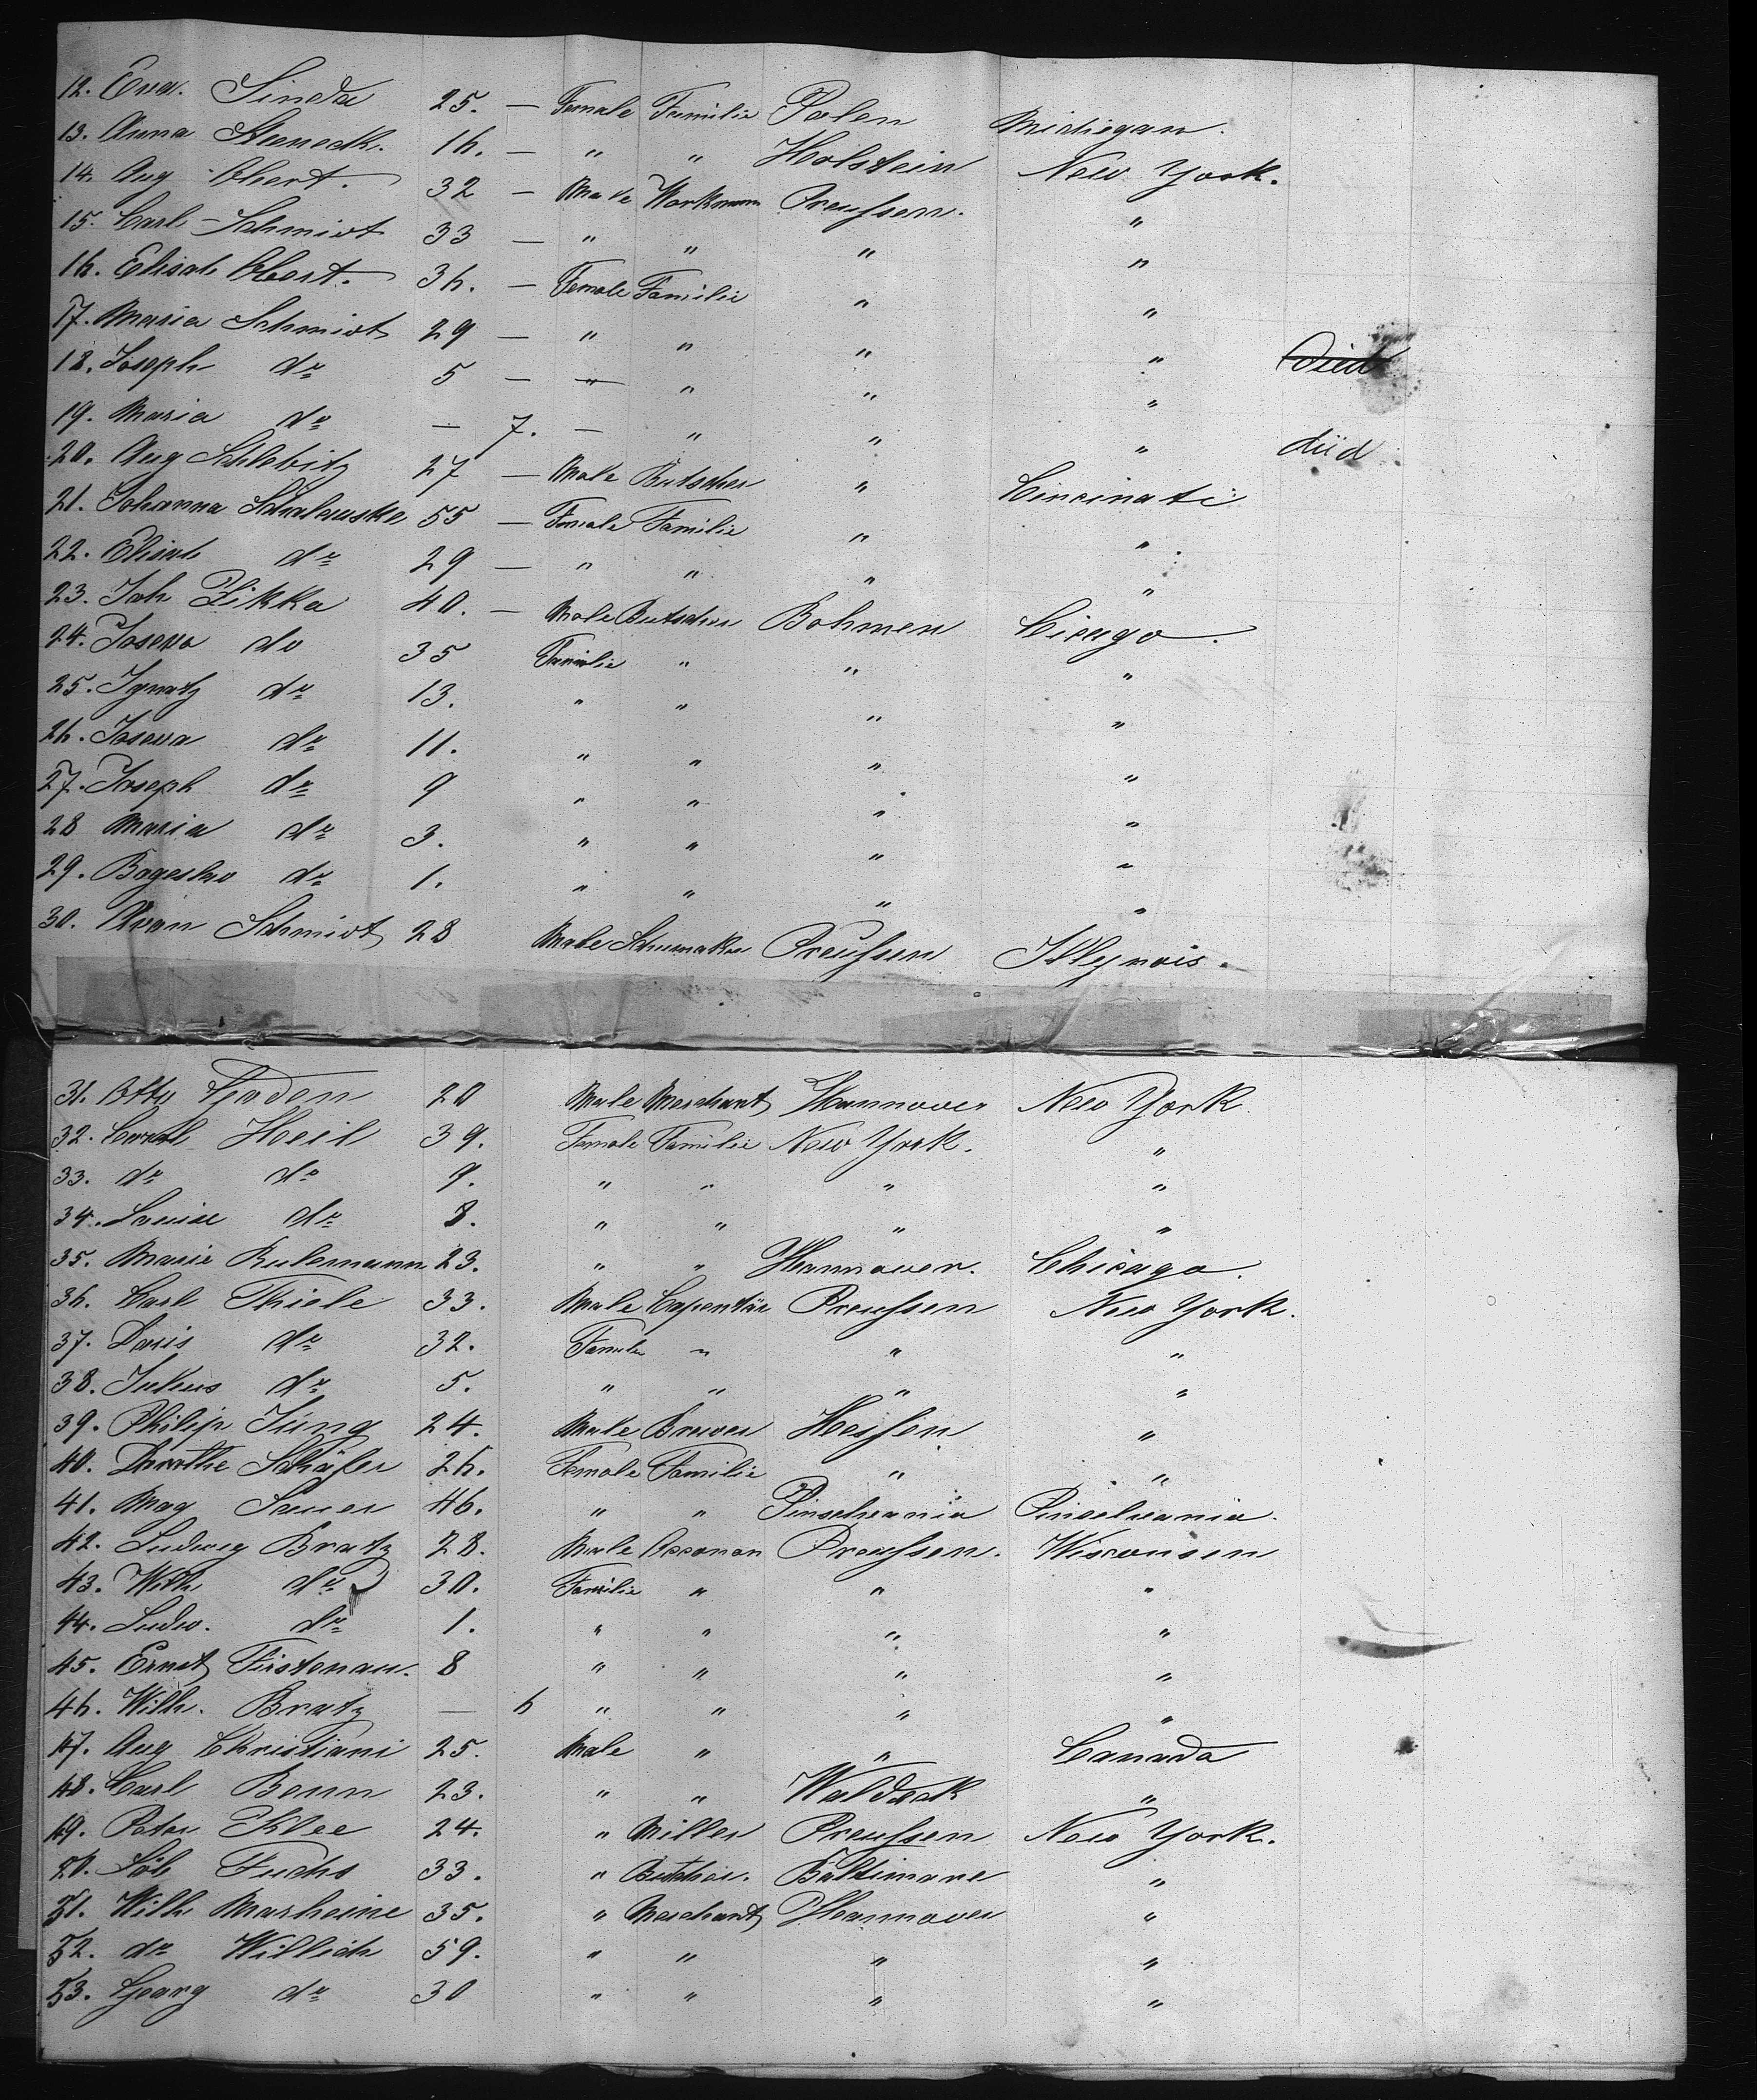 12. Eva. Sinda 25. — Female Familie Polen Michigan.
13. Anna 16. — " " Holstein New York.
14. Aug Obert. 32 — Male Workmann Preussen. "
15. Carl Schmidt 33 — " " " "
16. Elisab Obert. 36. — Female Familie " "
17. Maria Schmidt 29 — " " " "
18. Joseph do 5 — " " " " died
19. Maria do — 7. — " " " diid
20. Aug Schlebitz 27 — Male Butscher " Cincinati
21. Johanna 55 — Female Familie " "
22. Elisab do 29 — " " " "
23. Joh Zikka 40. — Male Butscher Bohmen Cicago.
24. Josepa do 35 Familie " " "
25. Ignatz do 13. " " " "
26. do 11. " " " "
27. Joseph do 9 " " " "
28 Maria do 3. " " " "
29. do 1. " " " "
30. Schmidt 28 Male Schumaker Preussen Illynois.
31. Otto 20 Male Merchant Hannover New York
32. Heil 39. Female Familie New York. "
33. do do 9. " " " "
34. Louise do 8. " " " "
35. Marie Rulemann 23. " " Hannover. Chicago.
36. Carl Thiele 33. Male Capentär Preussen New York.
37. Doris do 32. Famile " " "
38. Julius do 5. " " " "
39. Philip Jüng 24. Male Brewer Hessen "
40. Dorothe Schäfer 26. Female Familie " "
41. Mag Sauer 46. " " Pinselvania Pinselvania.
42. Ludwig Bratz 28. Male Preussen. Wisconsen
43. Wilh do 30. Familie " " "
44. Ludw. do 1. " " " "
45. Ernst Fürstenau. 8 " " " "
46. Wilh. Bratz — 6 " " " "
47. Aug Christiani 25. Male " " Canada
48. Carl 23. " " Waldeck "
49. Peter Klee 24. " Miller Preussen New York.
50. Löb Fuchs 33. " Butcher. Baltimore "
51. Wilh Marheine 35. " Merchant Hannover "
52. do Willich 59. " " " "
53. Georg do 30 " " " "